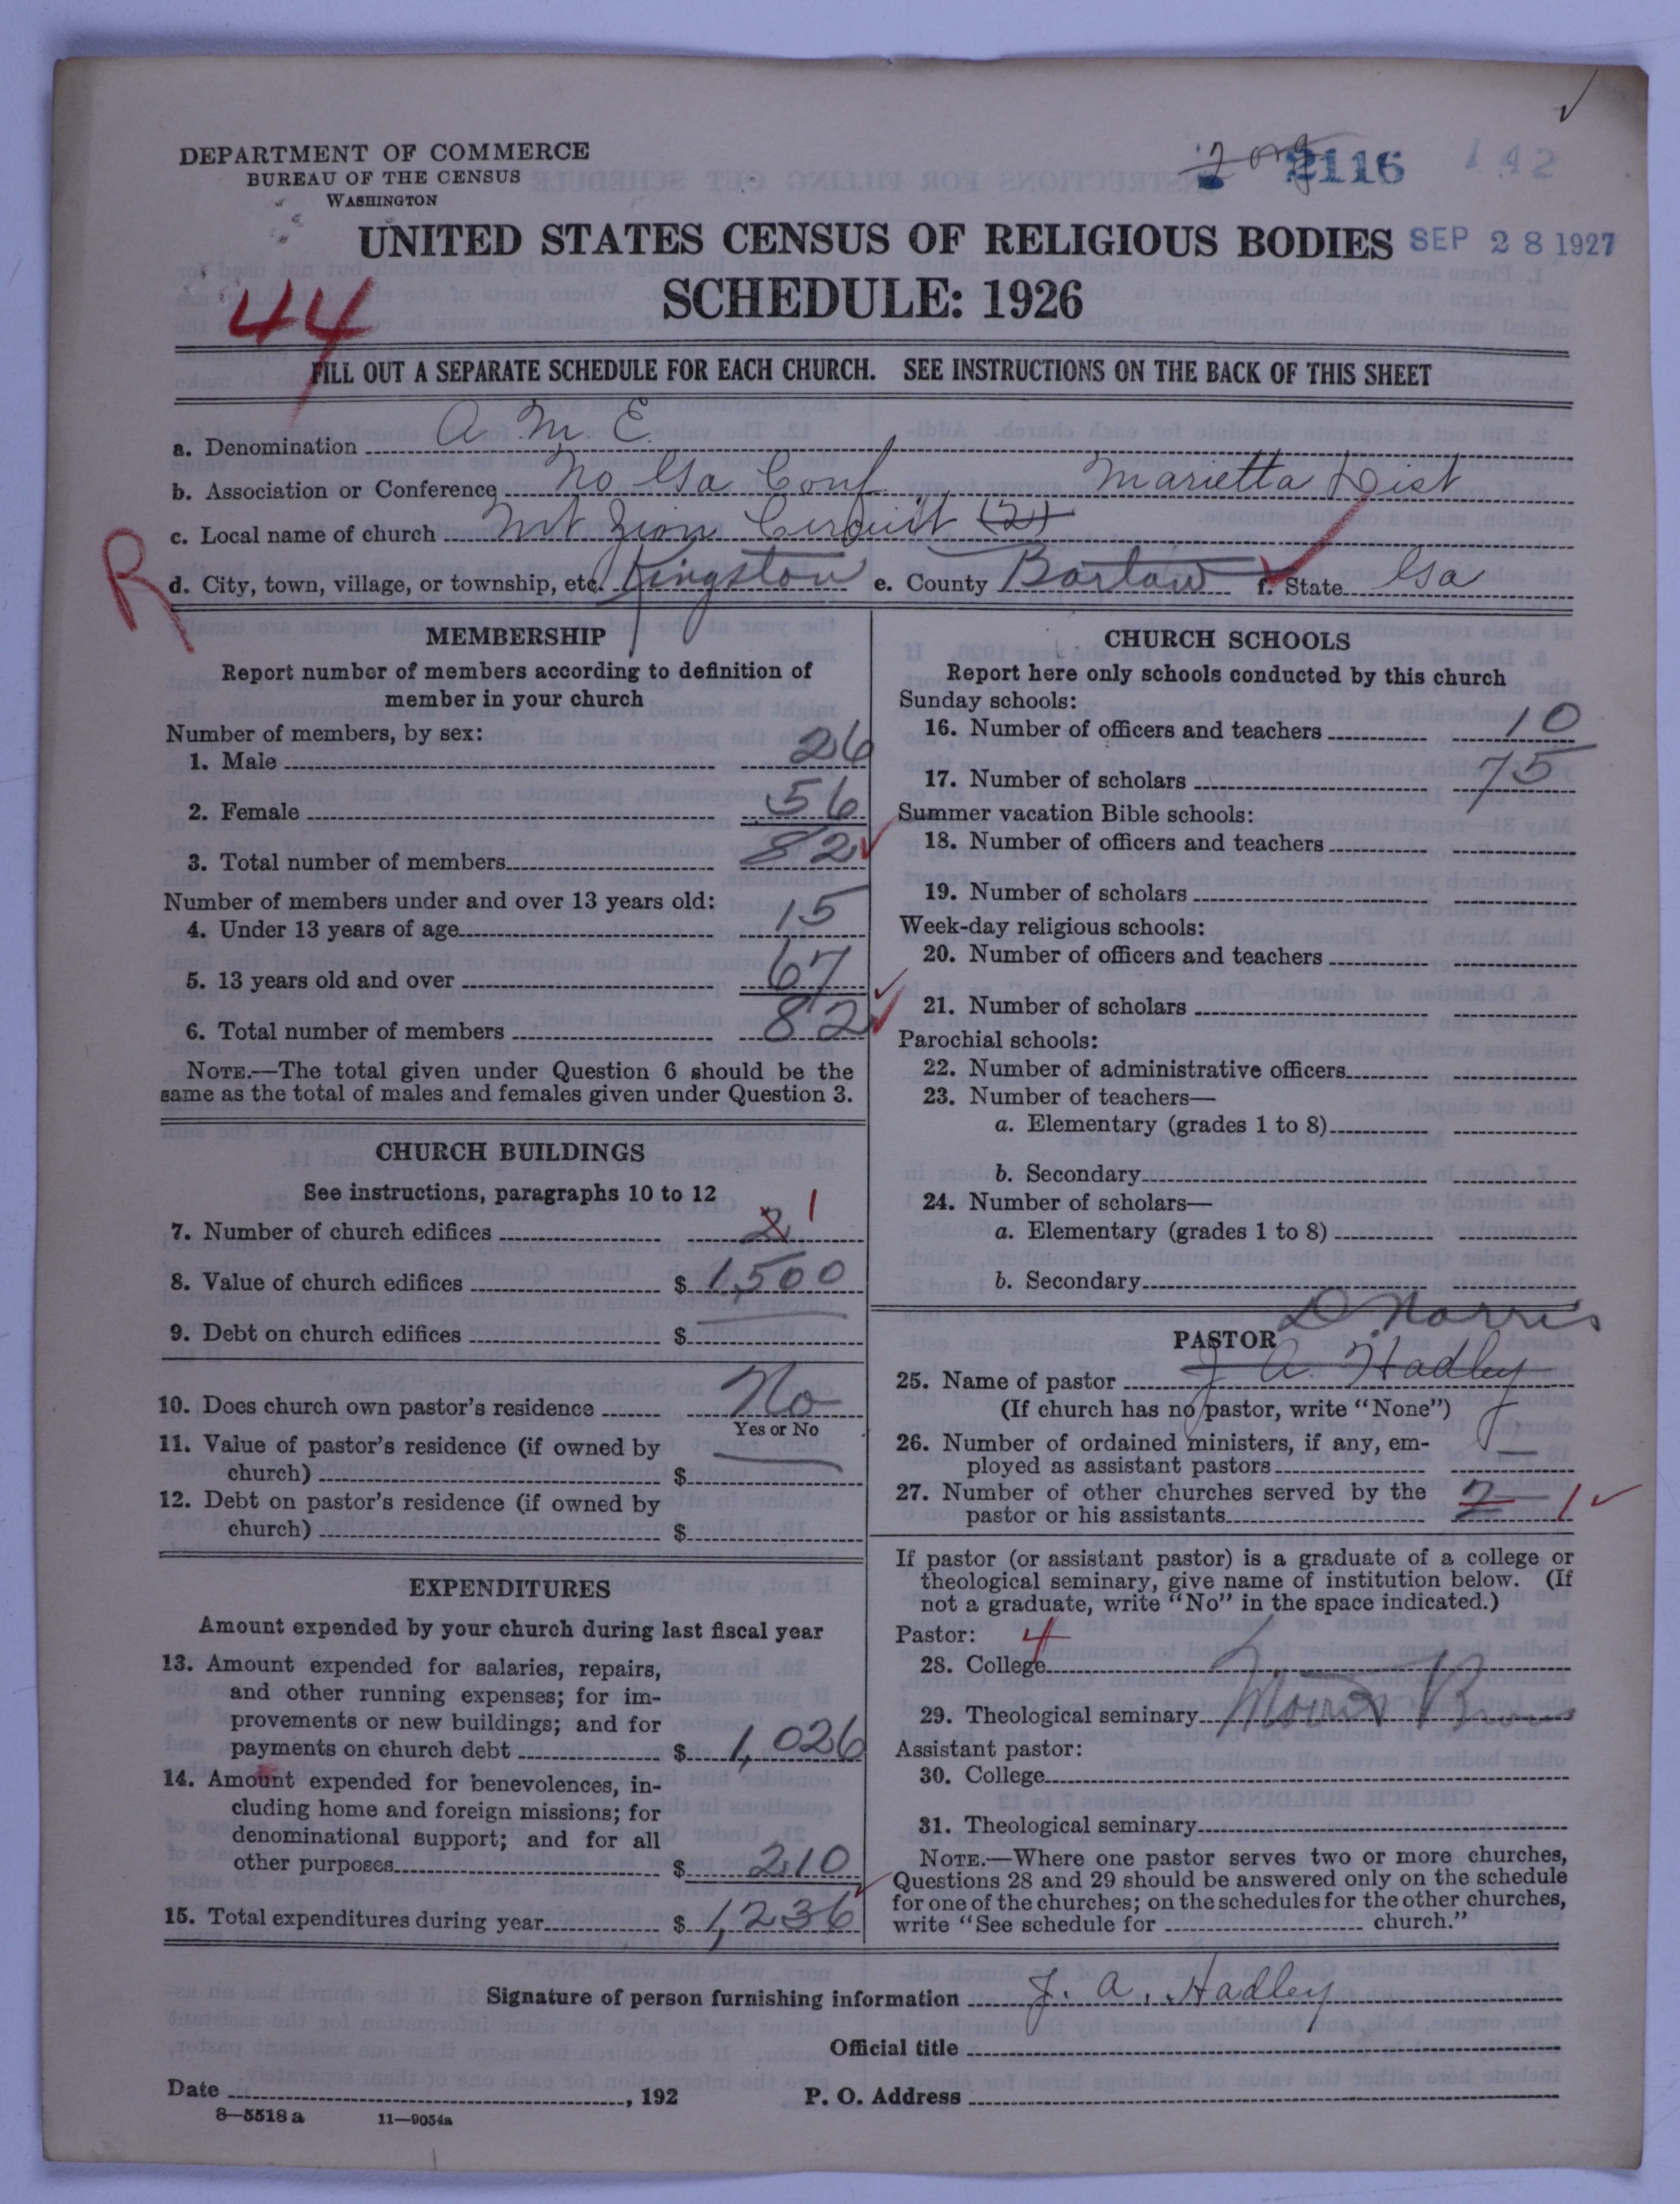 ✓
DEPARTMENT OF COMMERCE
BUREAU OF THE CENSUS
WASHINGTON
2 org 2116 142
UNITED STATES CENSUS OF RELIGIOUS BODIES SEP 28 1927
SCHEDULE: 1926
44
FILL OUT A SEPARATE SCHEDULE FOR EACH CHURCH. SEE INSTRUCTIONS ON THE BACK OF THIS SHEET
a. Denomination A. M. E.
b. Association or Conference No Ga Conf Marietta Dist
c. Local name of church Mt Zion Circuit (2)
R
d. City, town, village, or township, etc. Kingston e. County Bartow f. State Ga
MEMBERSHIP
Report number of members according to definition of
member in your church
Number of members, by sex:
1. Male 26
2. Female 56
3. Total number of members 82 ✓
Number of members under and over 13 years old:
4. Under 13 years of age 15
5. 13 years old and over 67 ✓
6. Total number of members 82 ✓
NOTE.—The total given under Question 6 should be the
same as the total of males and females given under Question 3.
CHURCH BUILDINGS
See instructions, paragraphs 10 to 12
7. Number of church edifices 2 1
8. Value of church edifices $ 1,500
9. Debt on church edifices $
10. Does church own pastor's residence No
Yes or No
11. Value of pastor's residence (if owned by
church) $
12. Debt on pastor's residence (if owned by
church) $
EXPENDITURES
Amount expended by your church during last fiscal year
13. Amount expended for salaries, repairs,
and other running expenses; for im-
provements or new buildings; and for
payments on church debt $ 1,026
14. Amount expended for benevolences, in-
cluding home and foreign missions; for
denominational support; and for all
other purposes $ 210
15. Total expenditures during year $ 1,236 ✓
CHURCH SCHOOLS
Report here only schools conducted by this church
Sunday schools:
16. Number of officers and teachers 10
17. Number of scholars 75
Summer vacation Bible schools:
18. Number of officers and teachers
19. Number of scholars
Week-day religious schools:
20. Number of officers and teachers
21. Number of scholars
Parochial schools:
22. Number of administrative officers
23. Number of teachers—
a. Elementary (grades 1 to 8)
b. Secondary
24. Number of scholars—
a. Elementary (grades 1 to 8)
b. Secondary
D. Norris
PASTOR
25. Name of pastor J. A. Hadley
(If church has no pastor, write "None")
26. Number of ordained ministers, if any, em-
ployed as assistant pastors —
27. Number of other churches served by the
pastor or his assistants 2 1 ✓
If pastor (or assistant pastor) is a graduate of a college or
theological seminary, give name of institution below. (If
not a graduate, write "No" in the space indicated.)
Pastor: 4
28. College
29. Theological seminary Morris Brown
Assistant pastor:
30. College
31. Theological seminary
NOTE.—Where one pastor serves two or more churches,
Questions 28 and 29 should be answered only on the schedule
for one of the churches; on the schedules for the other churches,
write "See schedule for church."
Signature of person furnishing information J. A. Hadley
Official title
Date , 192 P. O. Address
8—5518 a 11—9054a